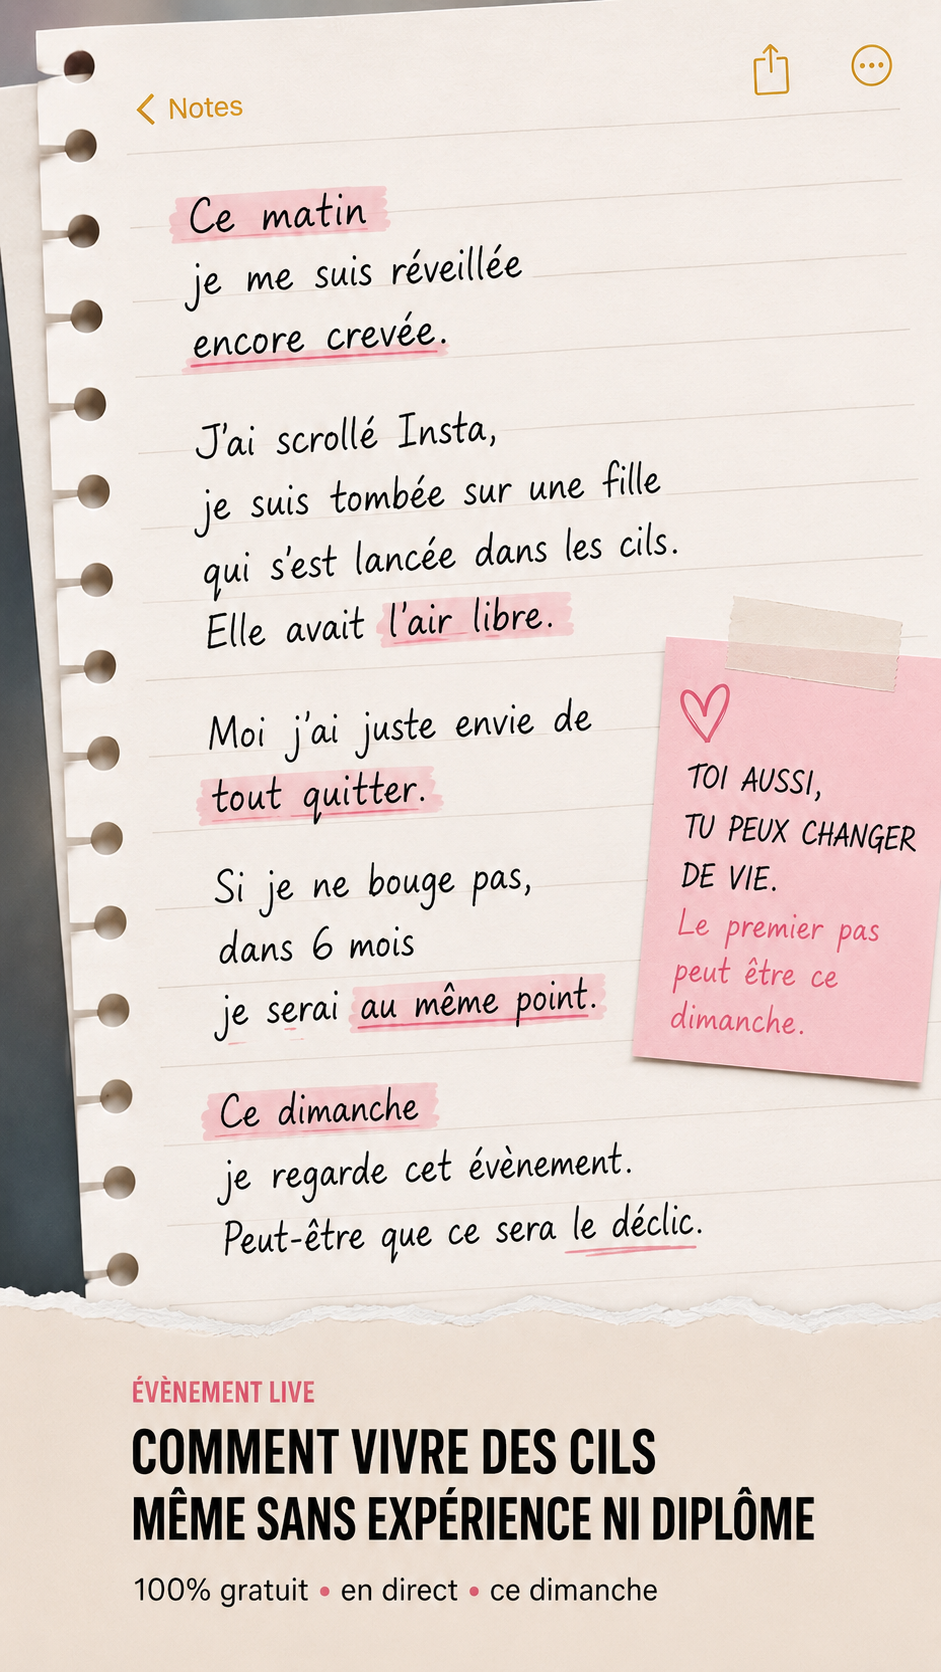 Notes
Ce matin
je me suis réveillée
encore crevée.
J'ai scrollé Insta,
je suis tombée sur une fille
qui s'est lancée dans les cils.
Elle avait l'air libre.
Moi j'ai juste envie de
tout quitter.
Si je ne bouge pas,
dans 6 mois
je serai au même point.
Ce dimanche
je regarde cet évènement.
Peut-être que ce sera le déclic.
TOI AUSSI,
TU PEUX CHANGER
DE VIE.
Le premier pas
peut être ce
dimanche.
ÉVÈNEMENT LIVE
COMMENT VIVRE DES CILS
MÊME SANS EXPÉRIENCE NI DIPLÔME
100% gratuit • en direct • ce dimanche